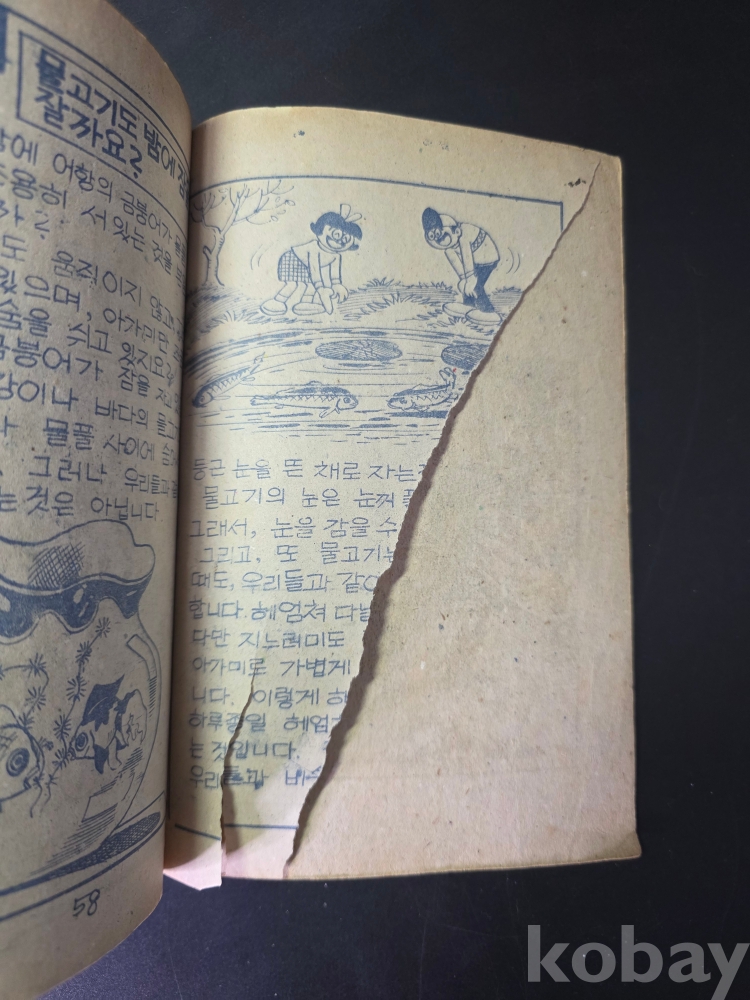 물고기도 밤에
잘까요?
어항의 금붕어가
조용히 서 있는 것을
까?
도 움직이지 않고
있으며, 아가미만
숨을 쉬고 있지요
금붕어가 잠을
강이나 바다의
나 물풀 사이에
그러나 우리들과
는 것은 아닙니다
58
둥근 눈을 뜬 채로 자는
물고기의 눈은 눈꺼풀
그래서, 눈을 감을 수
그리고, 또 물고기는
때도, 우리들과 같이
합니다. 헤엄쳐 다닐
다만 지느러미도
아가미로 가볍게
니다. 이렇게 해
하루종일 헤엄
는 것입니다.
우리들과 비슷
kobay